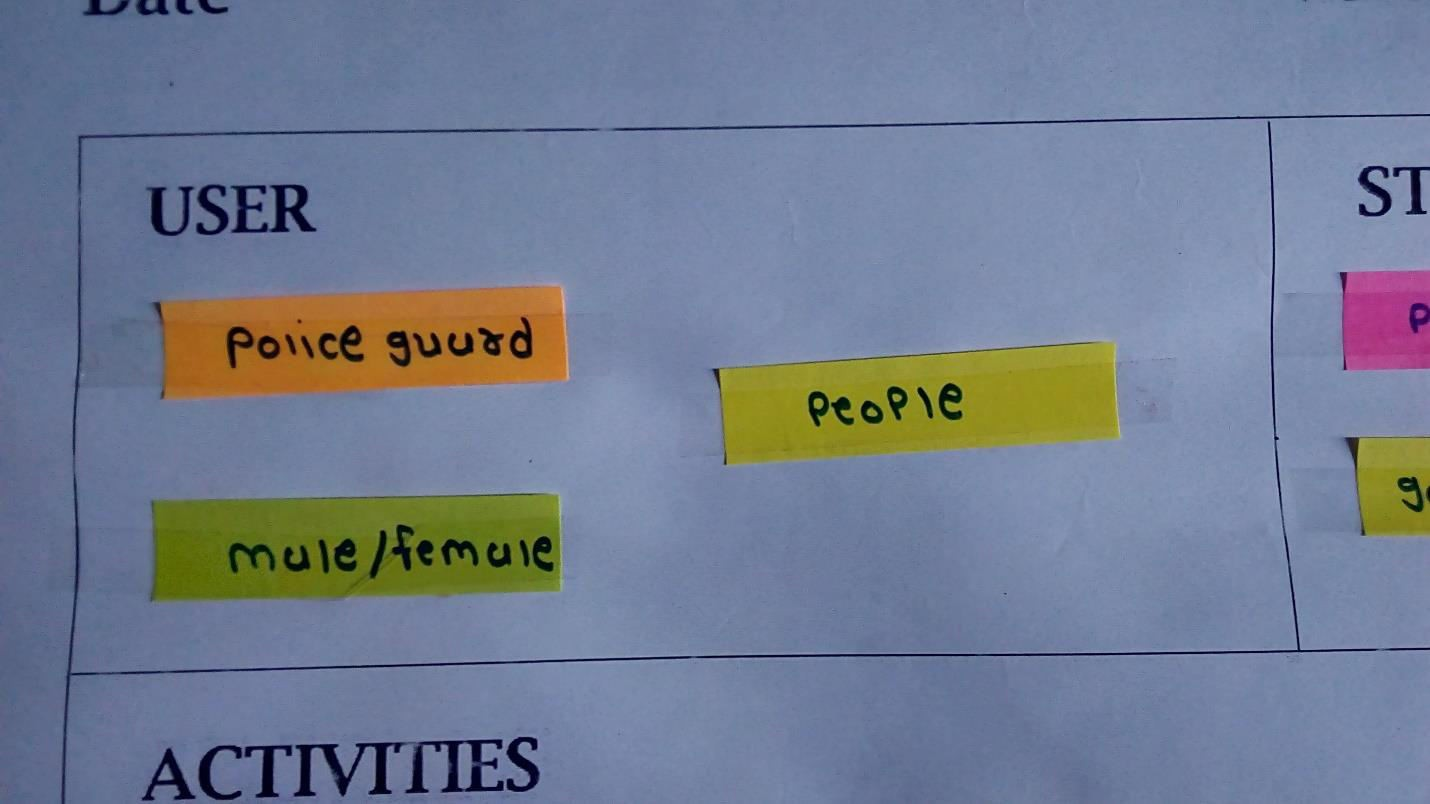 Date
USER
police guard
people
male/female
ACTIVITIES